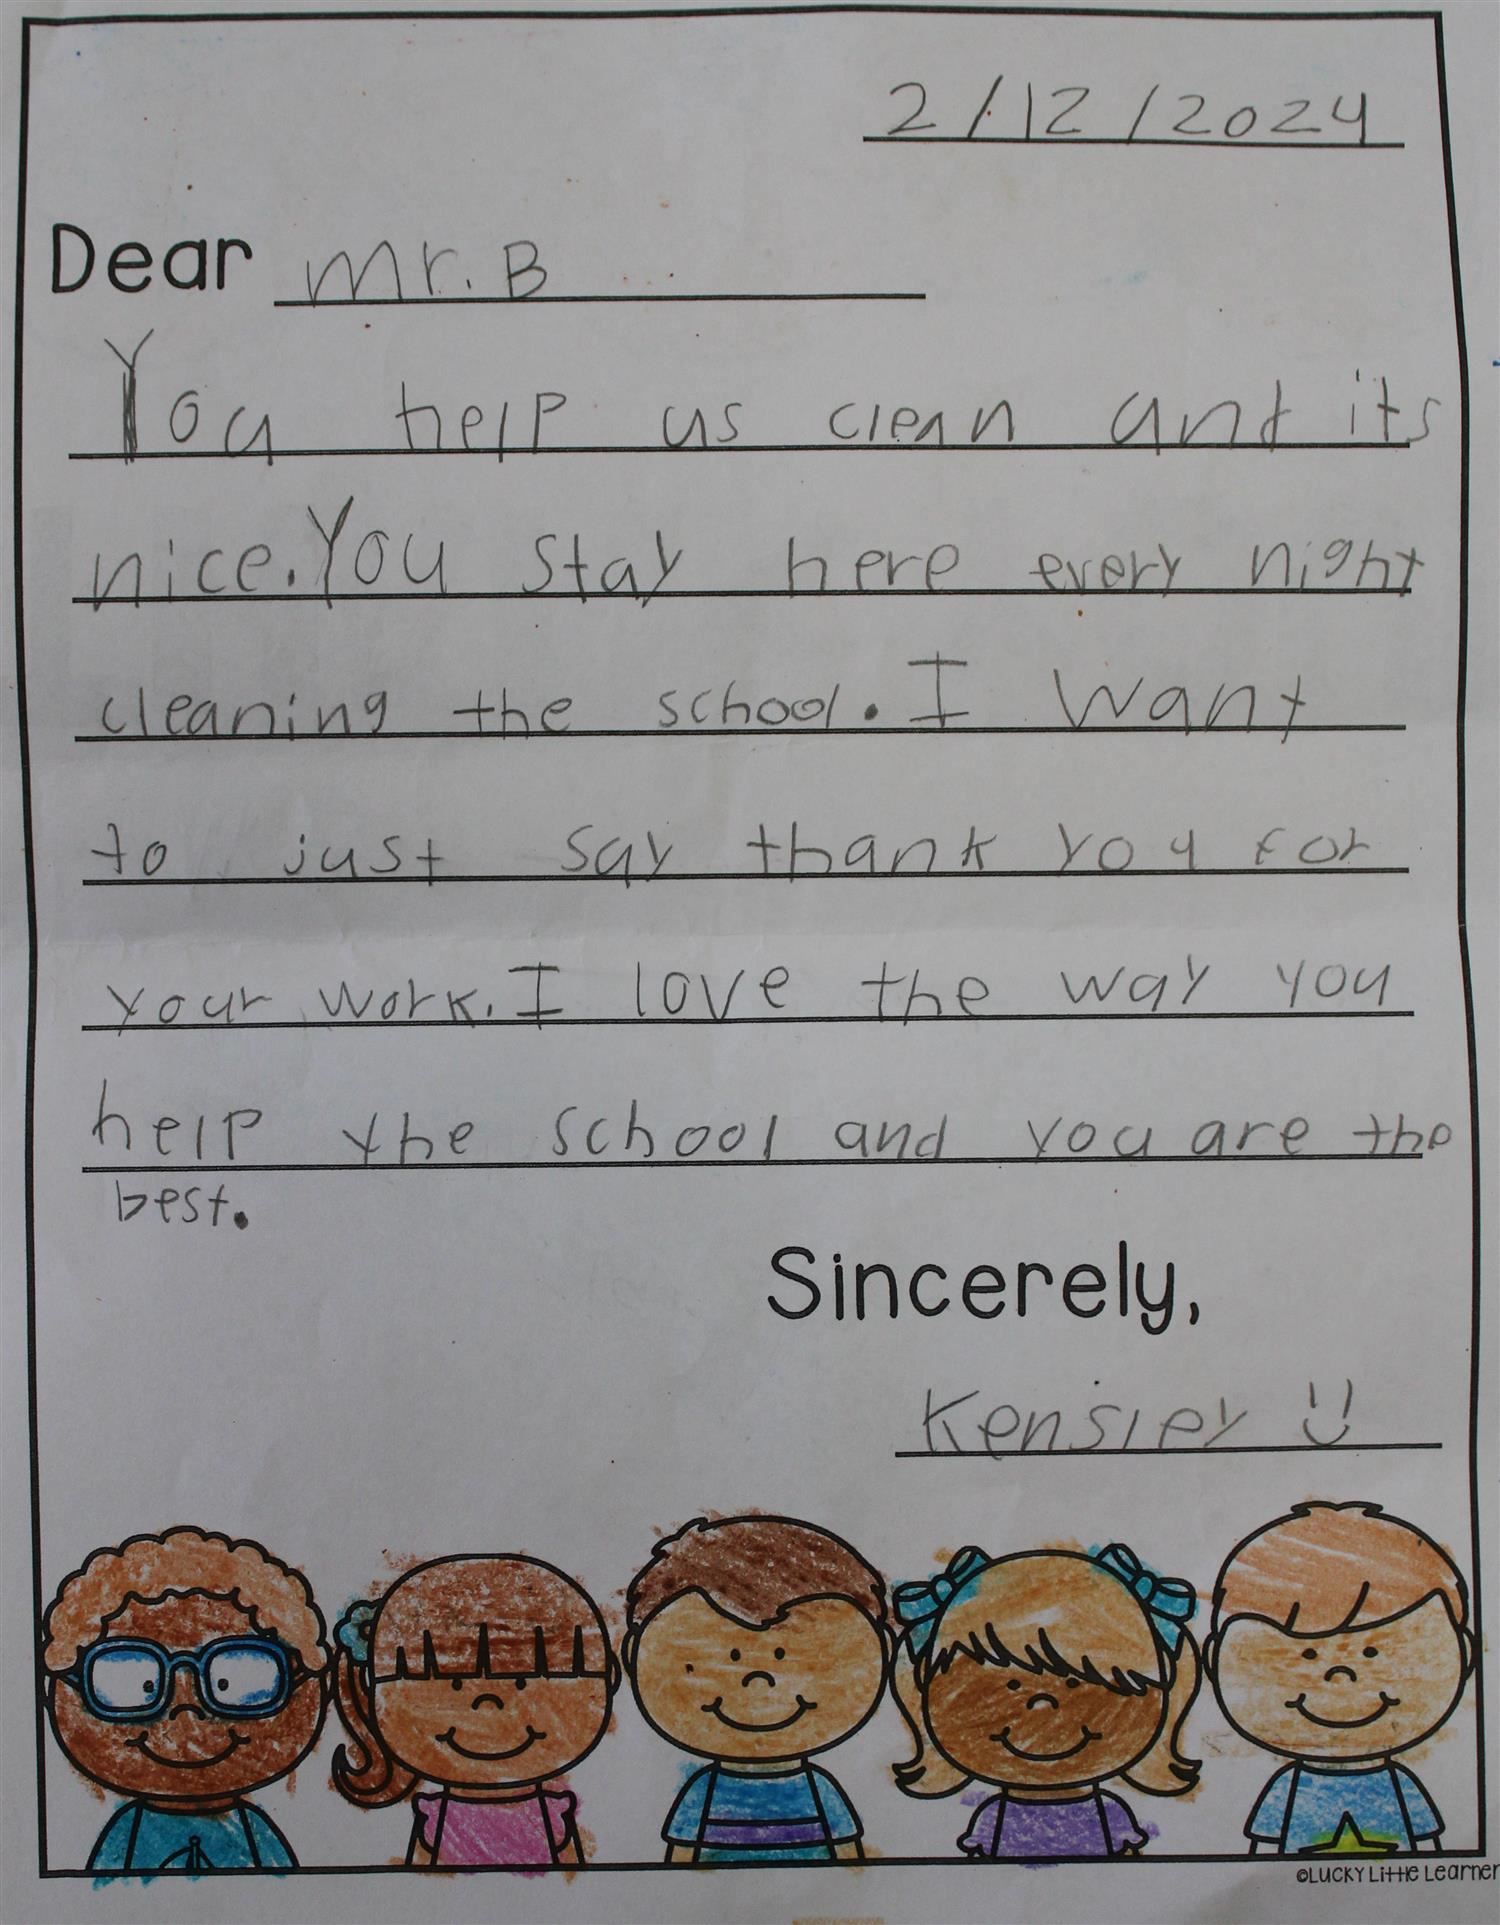 2/12/2024
Dear Mr. B
You help us clean ant its
nice. You stay here every night
cleaning the school. I want
to just say thank you for
your work. I love the way you
help the school and you are the
best.
Sincerely,
Kensley
©Lucky Little Learner